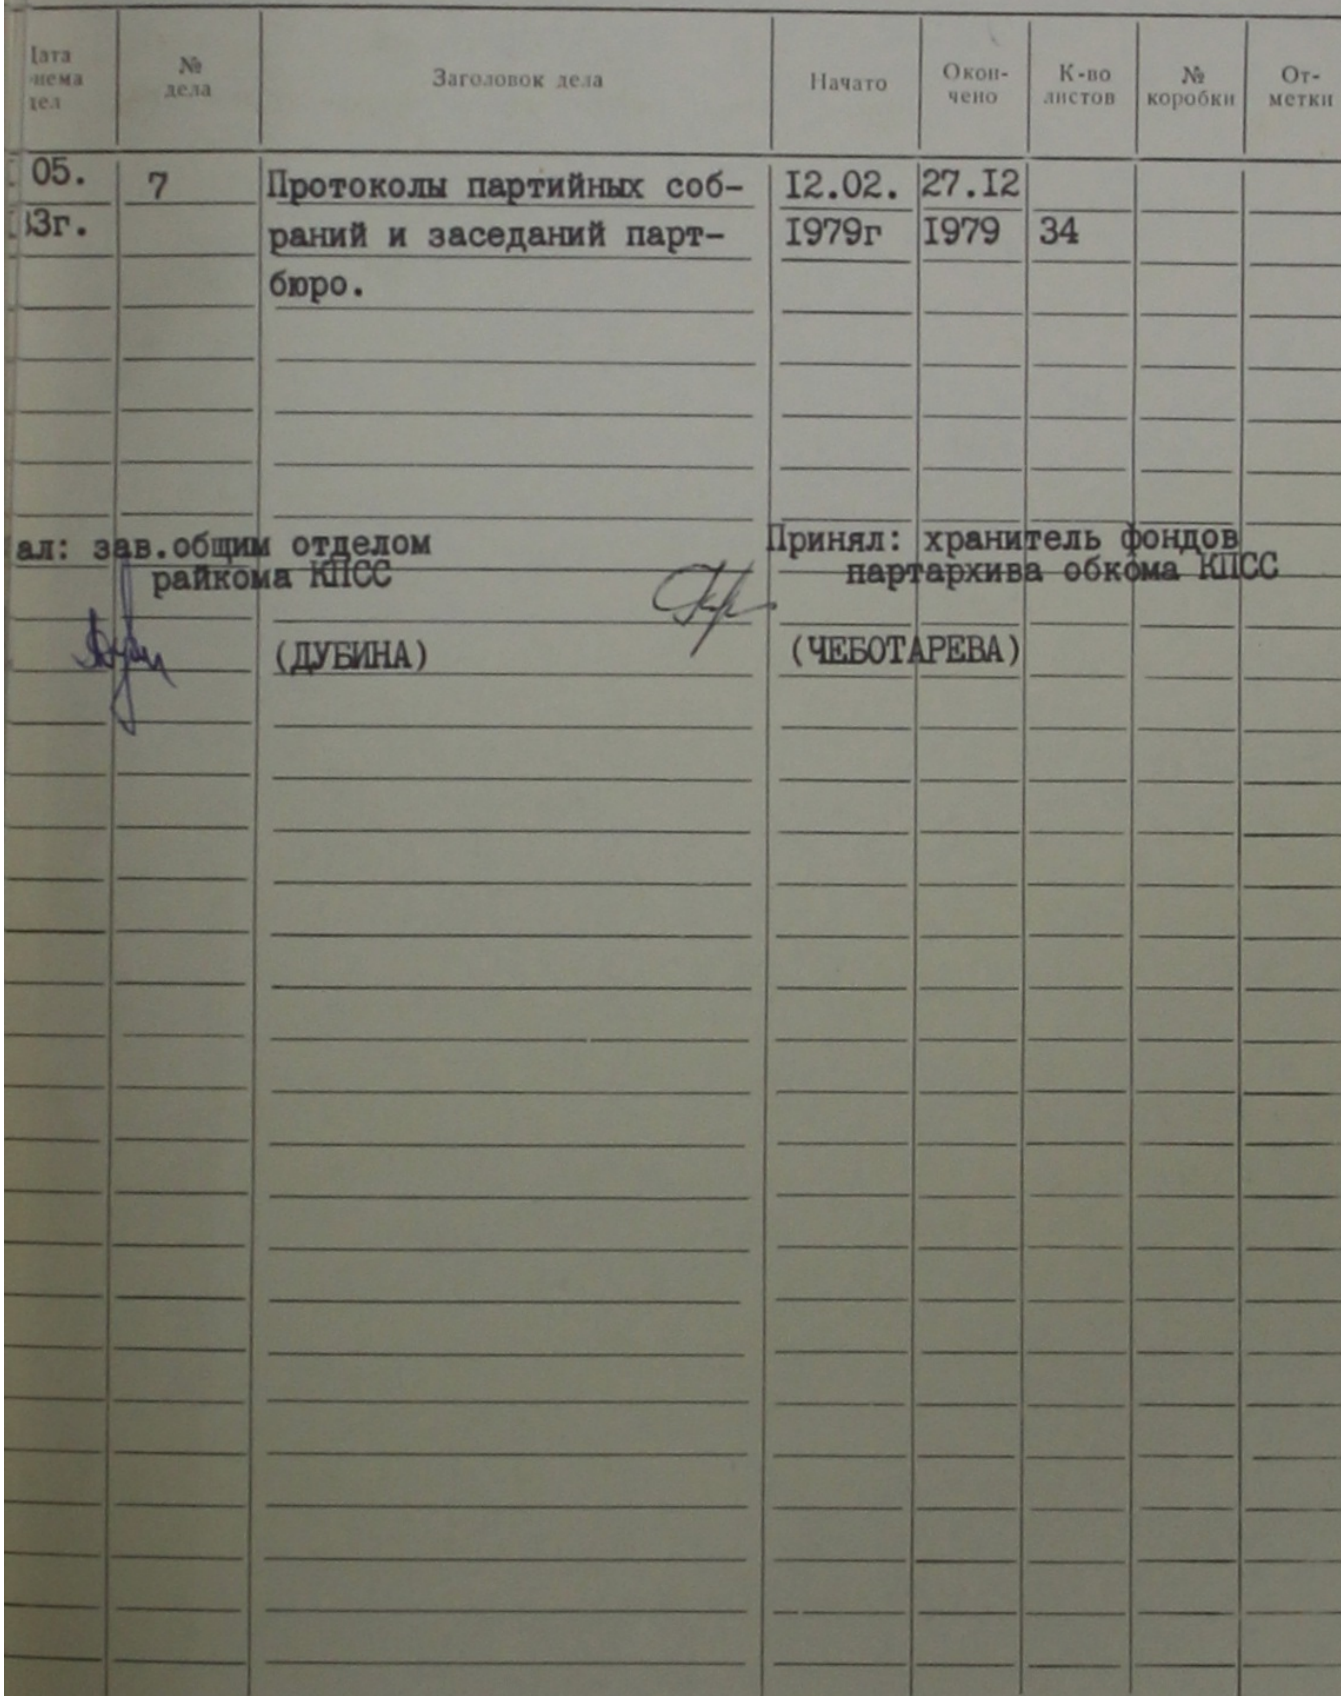 Дата
приема
дел
№
дела
Заголовок дела
Начато
Окон-
чено
К-во
листов
№
коробки
От-
метки
05. 7 Протоколы партийных соб- I2.02. 27.I2
3г. раний и заседаний парт- I979г I979 34
бюро.
ал: зав.общим отделом
райкома КПСС
Принял: хранитель фондов
партархива обкома КПСС
(ДУБИНА) (ЧЕБОТАРЕВА)